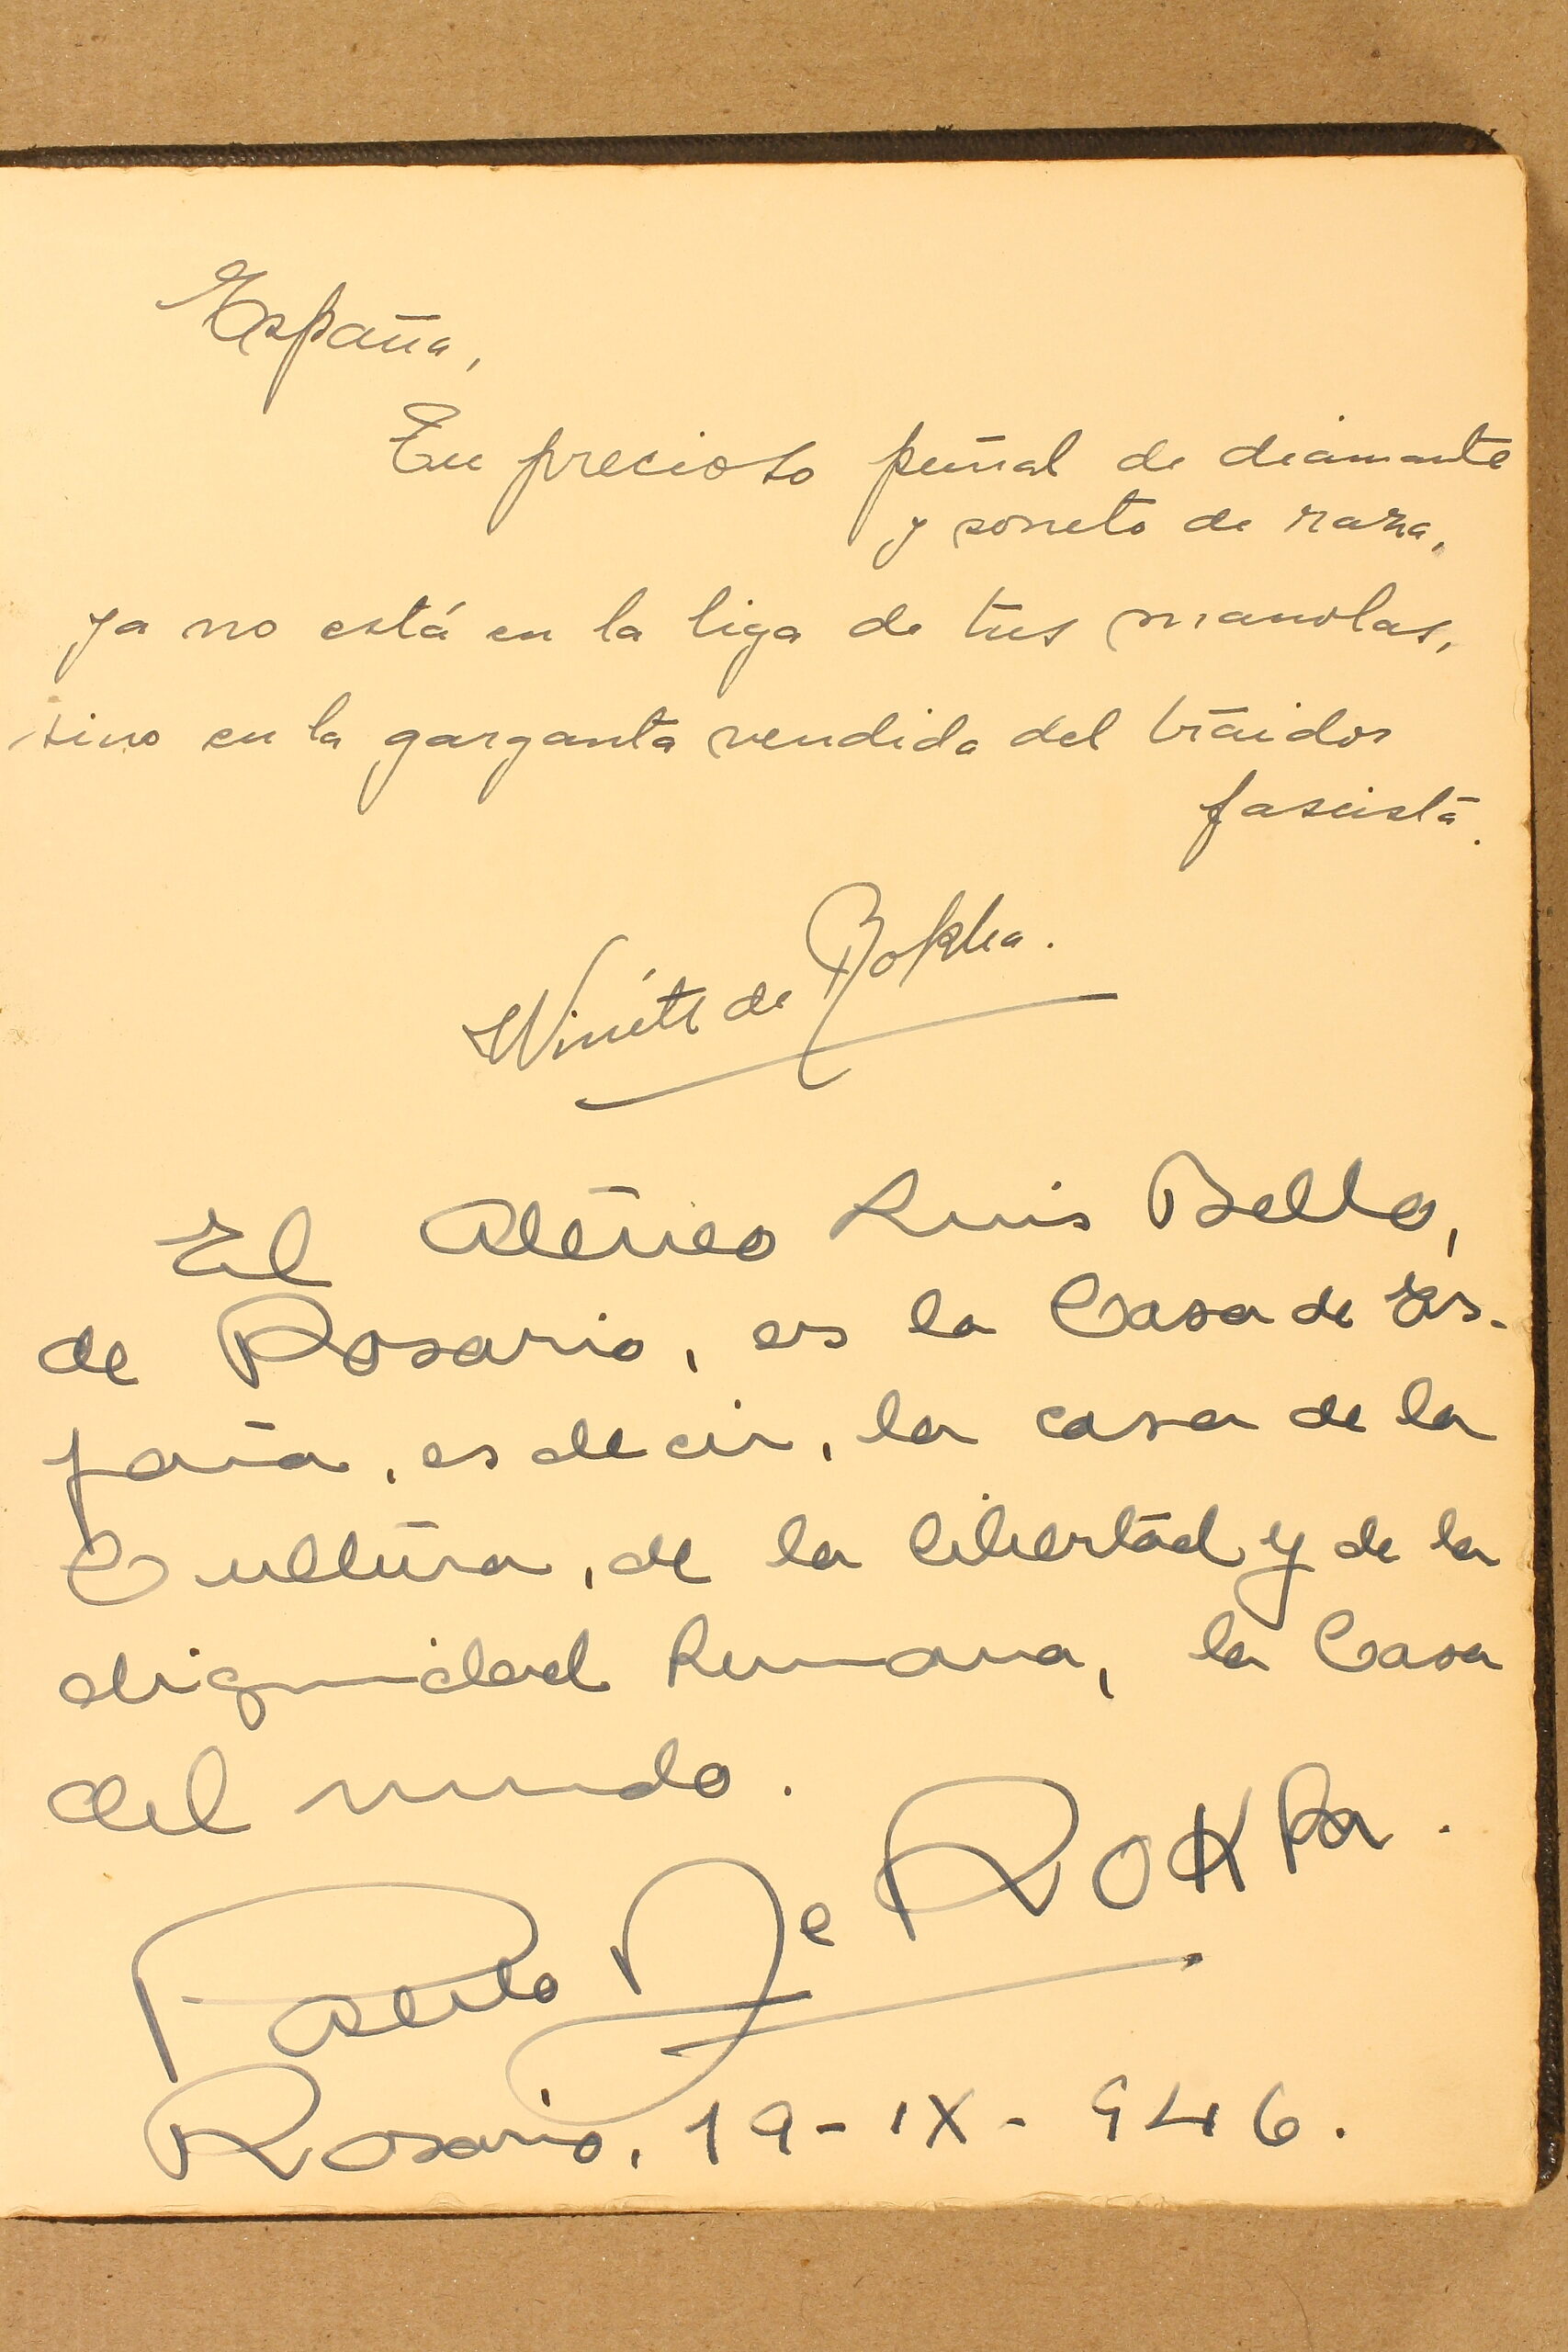 España,
Tu precioso puñal de diamante
y soneto de raza,
ya no está en la liga de tus manolas,
sino en la garganta vendida del traidor
fascista.
Winétt de Rokha.
El Ateneo Luis Bello,
de Rosario, es la Casa de Es-
paña, es decir, la casa de la
Cultura, de la libertad y de la
dignidad humana, la Casa
del mundo.
Pablo De ROKHA.
Rosario, 19-IX-946.